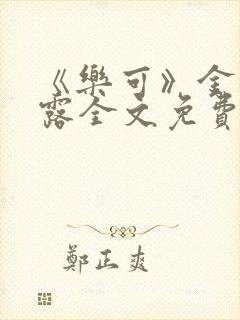 《樂可》金
露全文免費
鄭正爽